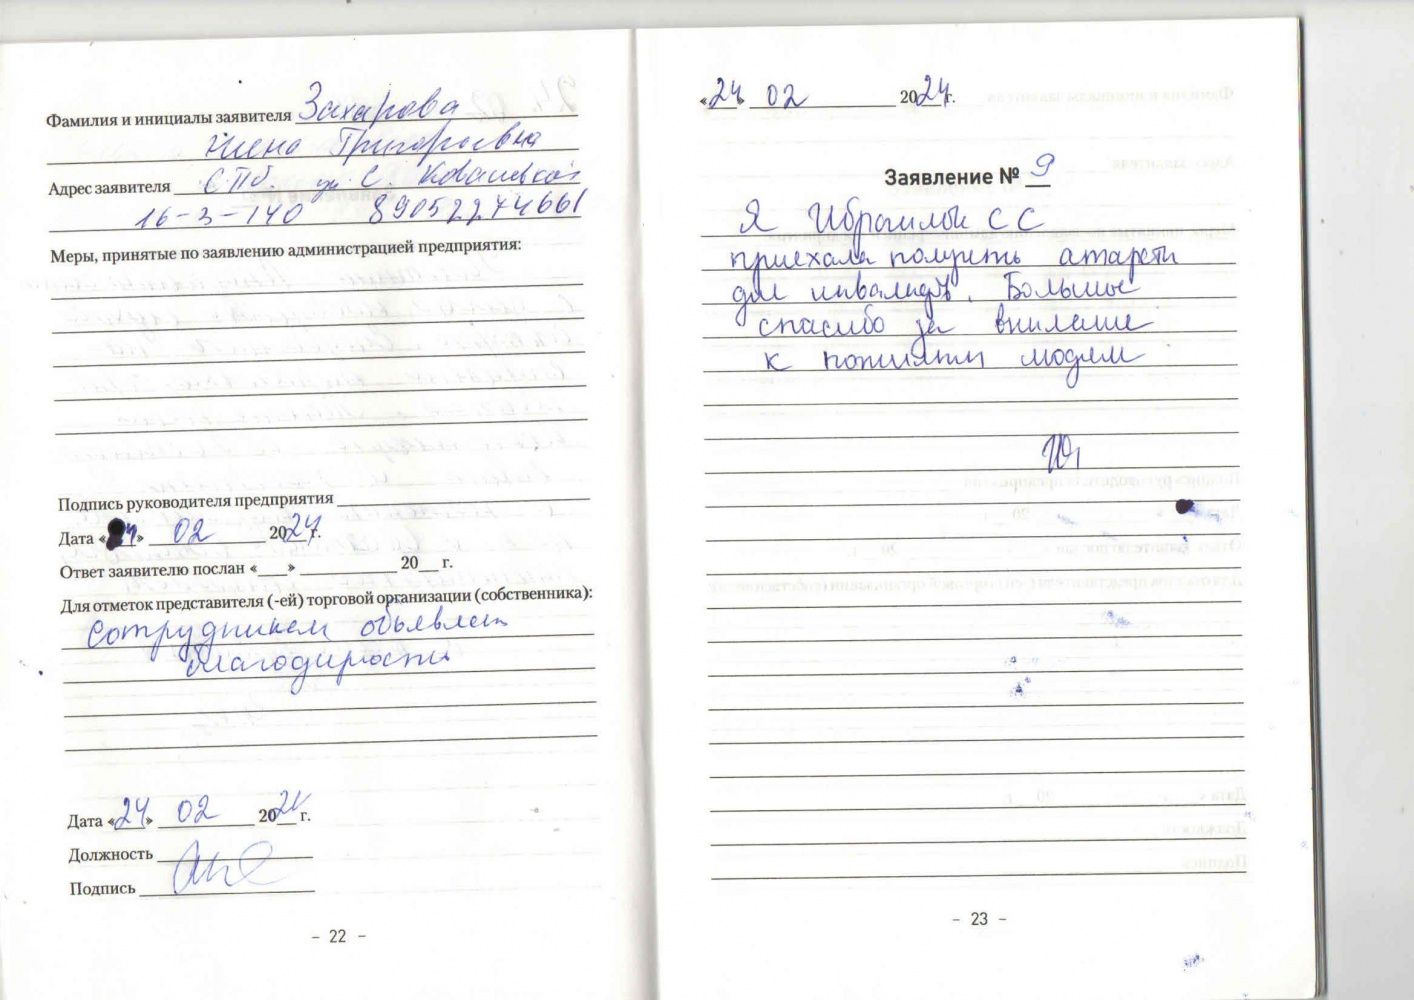 Фамилия и инициалы заявителя Захарова
Григорьевна
Адрес заявителя СПб. ул С Ковалевской
16-3-140 89052274661
Меры, принятые по заявлению администрацией предприятия:
Подпись руководителя предприятия
Дата «24» 02 2024 г.
Ответ заявителю послан «___» 20__ г.
Для отметок представителя (-ей) торговой организации (собственника):
Сотрудникам объявлен
благодарность
Дата «24» 02 2024 г.
Должность
Подпись
- 22 -
«24» 02 2024 г.
Заявление № 9
Я С С
приехала получить
для инвалидов. Большое
спасибо за внимание
к пожилым людям
- 23 -